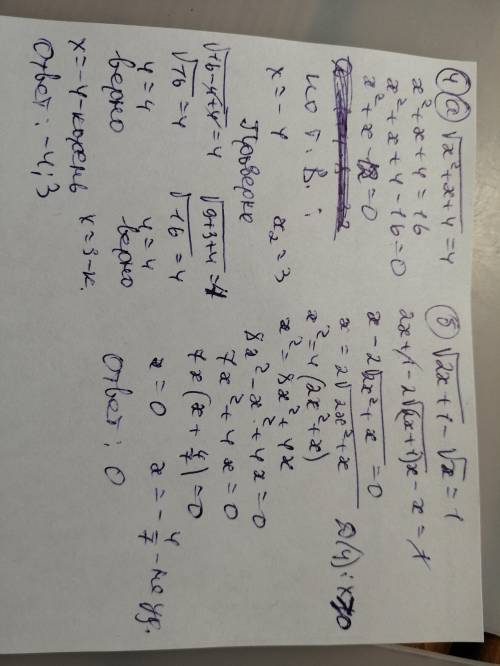 4 а) √x²+x+4 = 4
x²+x+4=16
x²+x+4-16=0
x²+x-12=0
по т. В.:
x=-4 x₂=3
Проверка
√16-4+4=4 √9+3+4=4
√16=4 √16=4
4=4 4=4
верно верно
x=-4-корень x=3-к.
Ответ: -4; 3
в) √2x+1 - √x = 1
2x+1-2√(2x+1)x - x = 1
x-2√2x²+x=0
x=2√2x²+x
x²=4(2x²+x)
x²=8x²+4x
8x²-x²+4x=0
7x²+4x=0
7x(x+4/7)=0
x=0 x=-4/7 - не уд.
Ответ: 0